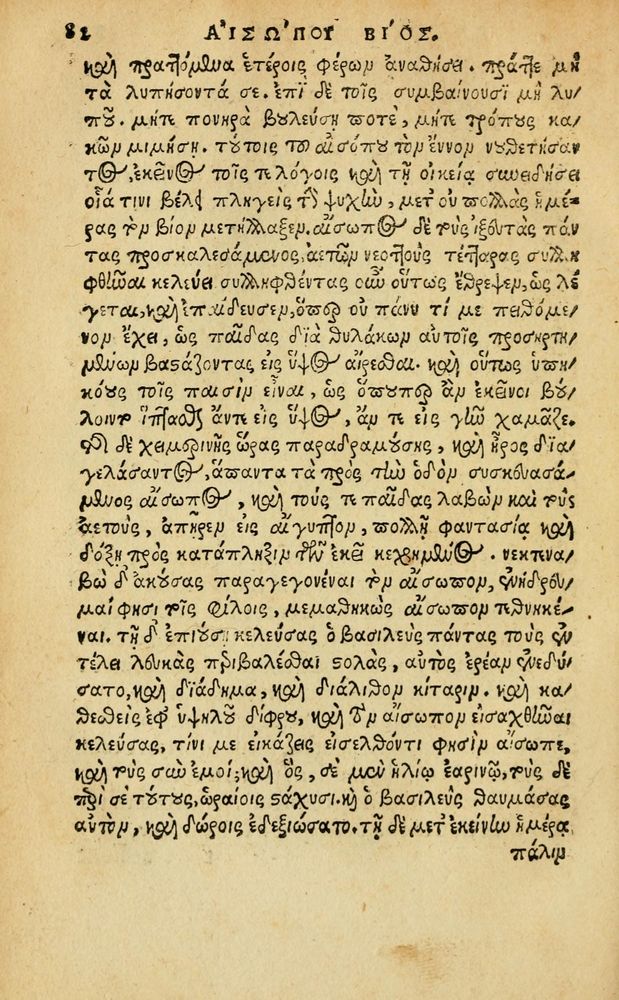 82 ΑἸΣΩ´ΠΟΥ ΒΙ´ΟΣ.
καὶ πραττόμενα ἑτέροις φέρων ἀναθήσει. πράττε μὴ
τὰ λυπήσοντά σε. ἐπὶ δὲ τοῖς συμβαίνουσι μὴ λυ/
ποῦ. μήτε πονηρὰ βουλεύσῃ ποτὲ, μήτε τρόπους κα/
κῶν μιμήσῃ. τούτοις τοῦ αἰσώπου τὸν ἔννον νουθετήσαν
τος, ἐκεῖνος τοῖς τε λόγοις καὶ τῇ οἰκείᾳ συνειδήσει
οἷά τινι βέλει πληγεὶς τὴν ψυχὴν, μετ οὐ πολλὰς ἡμέ/
ρας τὸν βίον μετήλλαξεν. αἴσωπος δὲ τοὺς ἰξευτὰς πάν
τας προσκαλεσάμενος, ἀετῶν νεοττοὺς τέτταρας συλλη
φθῆναι κελεύει συλληφθέντας οὖν οὕτως ἔθρεψεν, ὡς λέ
γεται, καὶ ἐπαίδευσεν, ὅπερ οὐ πάνυ τί με πειθόμε/
νον ἔχει, ὡς παῖδας διὰ θυλάκων αὐτοῖς προσηρτη/
μένων βαστάζοντας εἰς ὕψος αἴρεσθαι. καὶ οὕτως ὑπη/
κόους τοῖς παισὶν εἶναι, ὡς ὅπουπερ ἂν ἐκεῖνοι βού/
λοιντο ἵπτασθαι ἄντε εἰς ὕψος, ἄν τε εἰς γῆν χαμᾶζε.
τῆς δὲ χειμερινῆς ὥρας παραδραμούσης, καὶ ἦρος δια/
γελάσαντος, ἅπαντα τὰ πρὸς τὴν ὁδὸν συσκευασά/
μενος αἴσωπος, καὶ τοὺς τε παῖδας λαβὼν καὶ τοὺς
ἀετοὺς, ἀπῆρεν εἰς αἴγυπτον, πολλῇ φαντασίᾳ καὶ
δόξῃ πρὸς κατάπληξιν τῶν ἐκεῖ κεχρημένος. νεκτενα/
βὼ δ ἀκούσας παραγεγονέναι τὸν αἴσωπον, ἐνήδρευ/
μαί φησι τοῖς φίλοις, μεμαθηκὼς αἴσωπον τεθνηκέ/
ναι. τῇ δ ἐπιούσῃ κελεύσας ὁ βασιλεὺς πάντας τοὺς ἐν
τέλει λευκὰς περιβαλέσθαι στολὰς, αὐτὸς ἐρέαν ἐνεδύ/
σατο, καὶ διάδημα, καὶ διάλιθον κίταριν. καὶ κα/
θεσθεὶς ἐφ ὑψηλοῦ δίφρου, καὶ τὸν αἴσωπον εἰσαχθῆναι
κελεύσας, τίνι με εἰκάζεις εἰσελθόντι φησὶν αἴσωπε,
καὶ τοὺς σὺν ἐμοί; καὶ ὃς, σὲ μὲν ἡλίῳ ἐαρινῷ, τοὺς δὲ
περὶ σὲ τούτους, ὡραίοις στάχυσι. καὶ ὁ βασιλεὺς θαυμάσας
αὐτὸν, καὶ δώροις ἐδεξιώσατο. τῇ δὲ μετ ἐκείνην ἡμέρᾳ
πάλιν